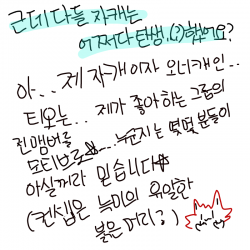 근데 다들 자캐는
어쩌다 탄생,(?)했어요?
아.. 제 자캐이자 오너캐인..
티오는.. 제가 좋아하는 그룹의
전멤버를
모티브로.... 누군지는 몇몇 분들이
아실꺼라 믿습니다
(컨셉은 늑미의 유일한
붉은 머리?)